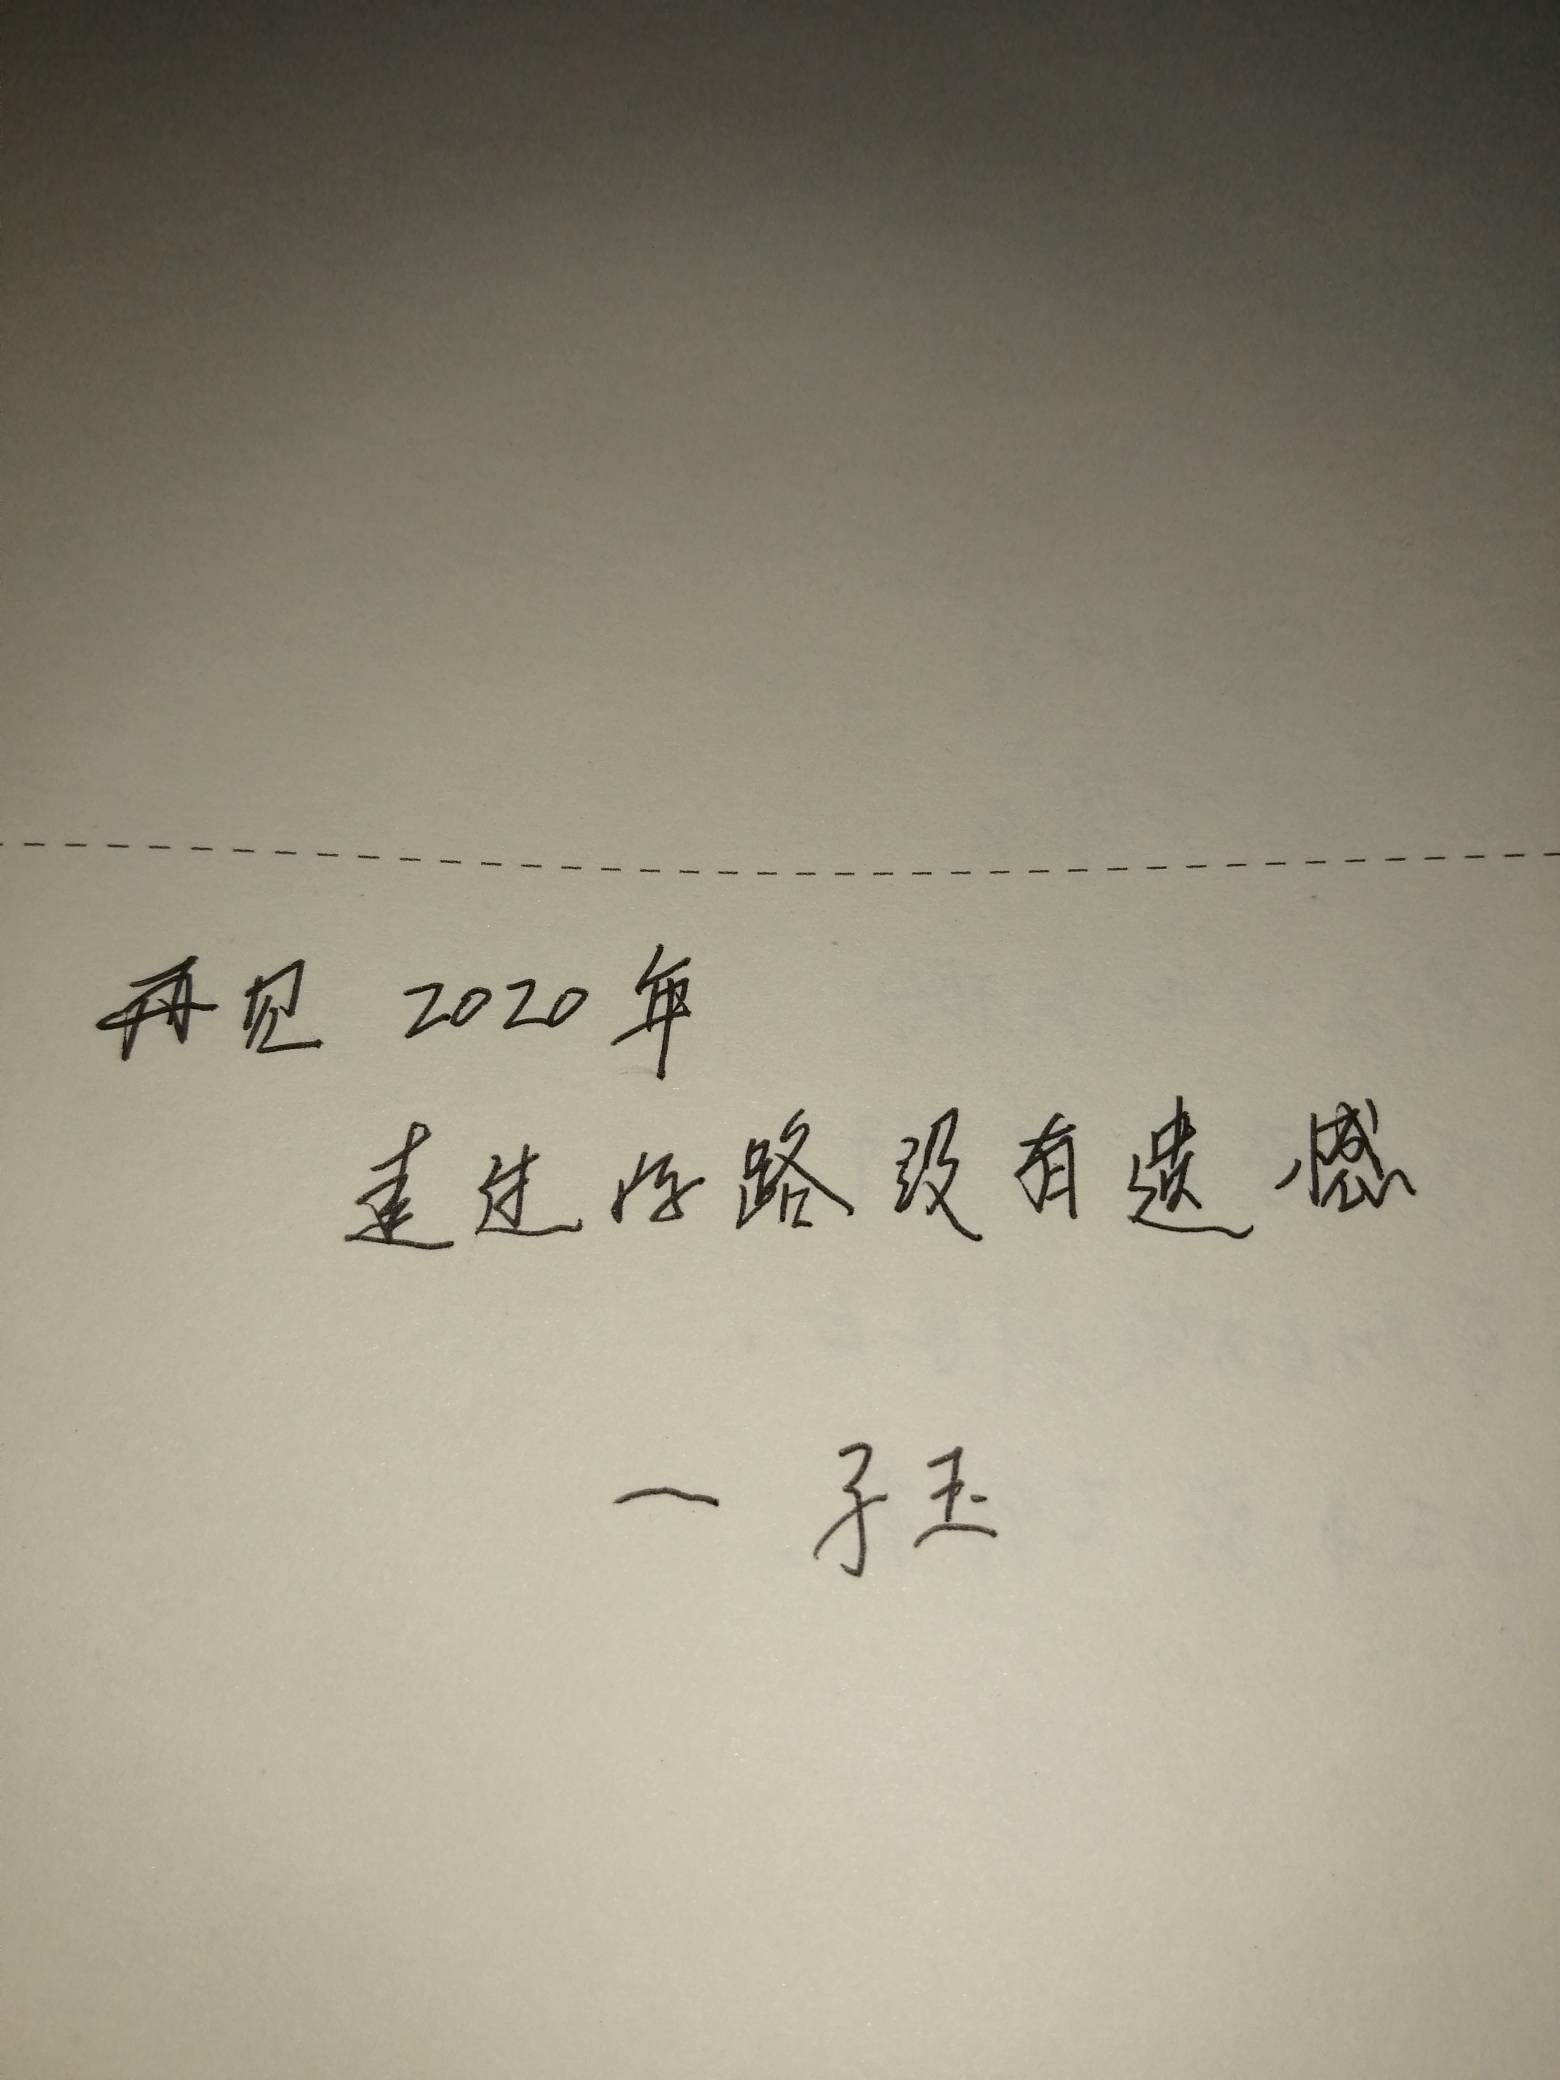 再见 2020年
走过的路没有遗憾
— 子玉